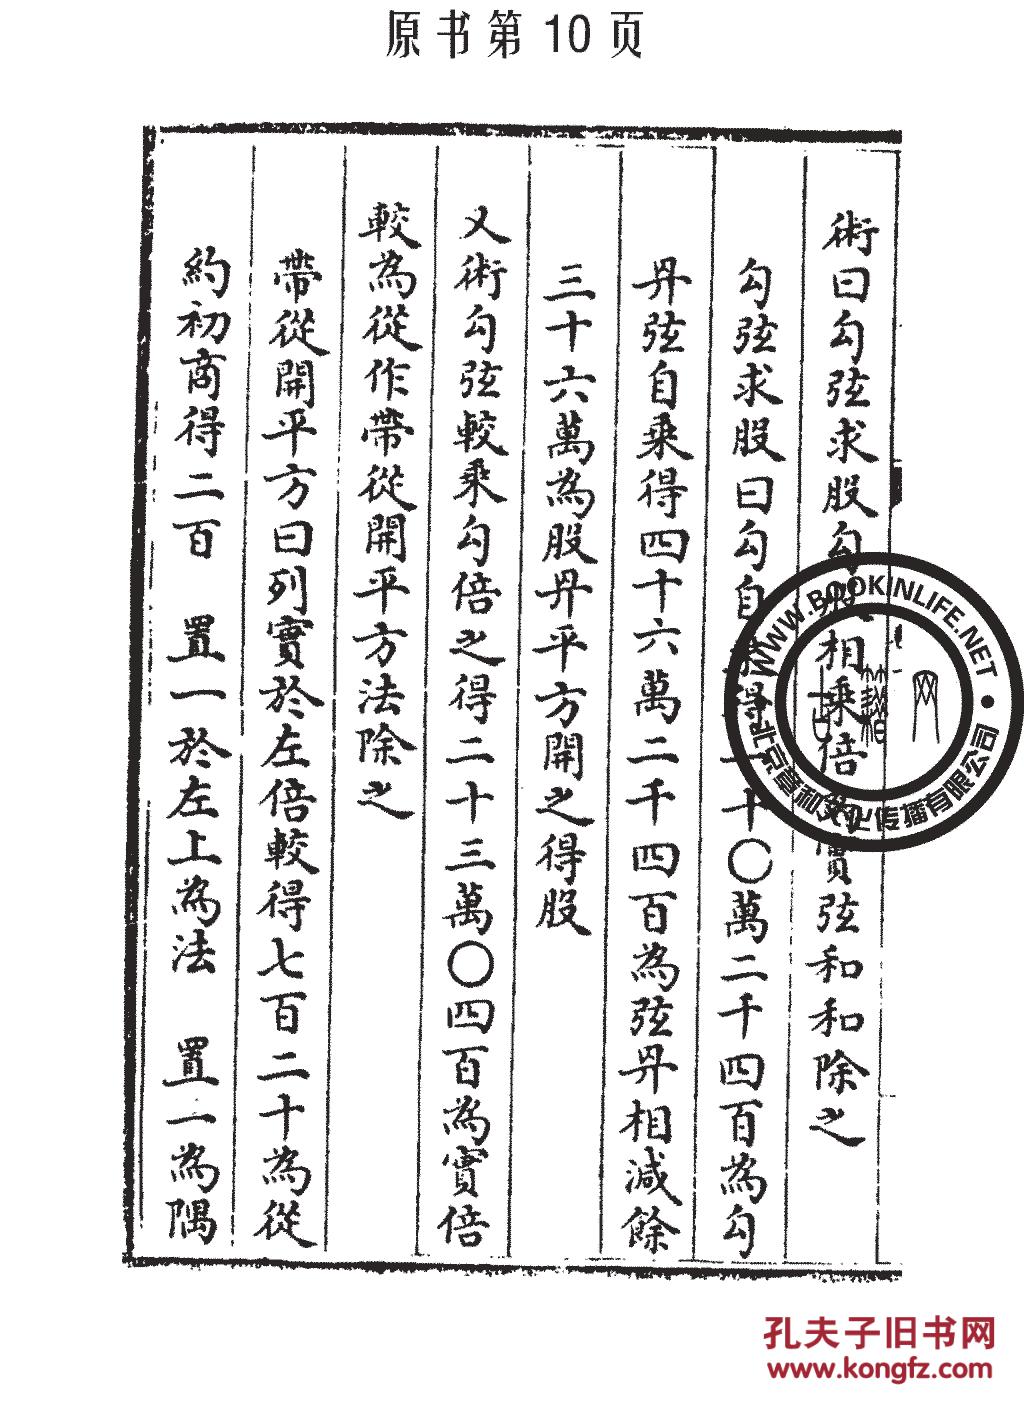 原书第10页
術曰勾弦求股勾相乘倍為實弦和和除之
勾弦求股曰勾自乘得一十〇萬二千四百為勾
丹弦自乘得四十六萬二千四百為弦丹相減餘
三十六萬為股丹平方開之得股
又術勾弦較乘勾倍之得二十三萬〇四百為實倍
較為從作帶從開平方法除之
帶從開平方曰列實於左倍較得七百二十為從
約初商得二百 置一於左上為法 置一為隅
WWW.BOOKINLIFE.NET
北京章和文化传播有限公司
孔夫子旧书网
www.kongfz.com